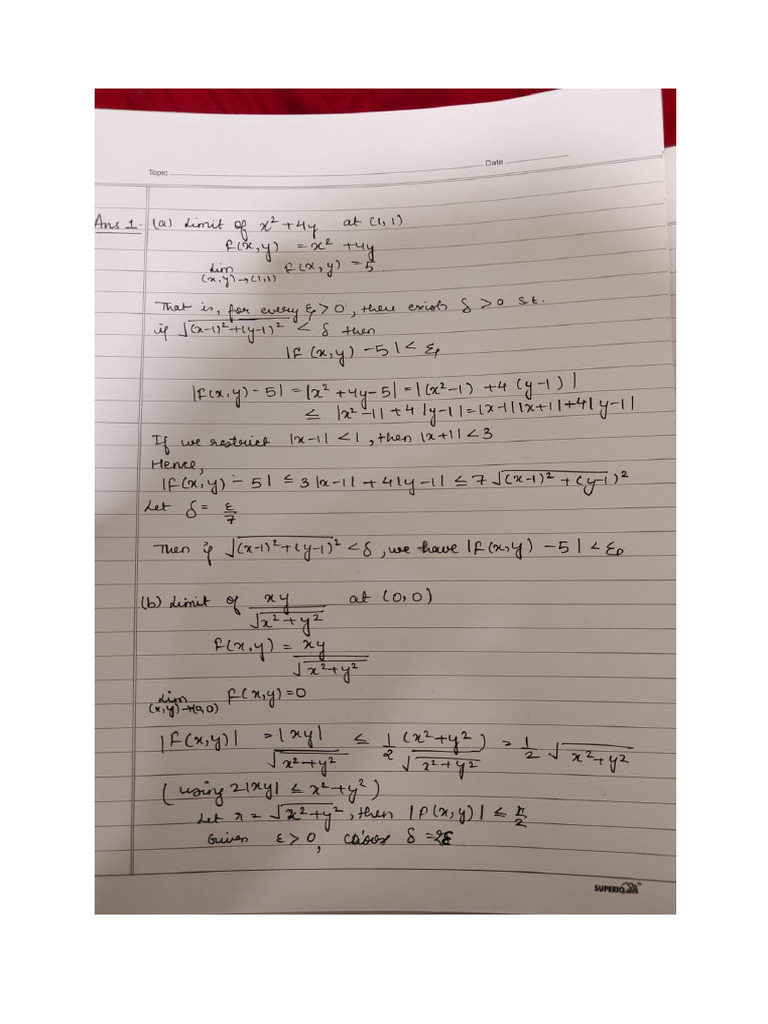 Topic
Date
Ans 1. (a) Limit of x² + 4y at (1,1)
f(x,y) = x² + 4y
lim (x,y)→(1,1) f(x,y) = 5.
That is, for every ε>0, there exists δ>0 s.t.
if √((x-1)²+(y-1)²) < δ then
|f(x,y) - 5| < ε
|f(x,y) - 5| = |x² + 4y - 5| = |(x²-1) + 4(y-1)|
≤ |x²-1| + 4|y-1| = |x-1||x+1| + 4|y-1|
If we restrict |x-1| < 1, then |x+1| < 3
Hence,
|f(x,y) - 5| ≤ 3|x-1| + 4|y-1| ≤ 7√((x-1)² + (y-1)²)
Let δ = ε/7
Then if √((x-1)²+(y-1)²) < δ, we have |f(x,y) - 5| < ε
(b) Limit of xy/√(x²+y²) at (0,0)
f(x,y) = xy/√(x²+y²)
lim (x,y)→(0,0) f(x,y) = 0
|f(x,y)| = |xy|/√(x²+y²) ≤ 1/2 (x²+y²)/√(x²+y²) = 1/2 √(x²+y²)
(using 2|xy| ≤ x²+y²)
Let r = √(x²+y²), then |f(x,y)| ≤ r/2
Given ε > 0, δ = 2ε
SUPERIO